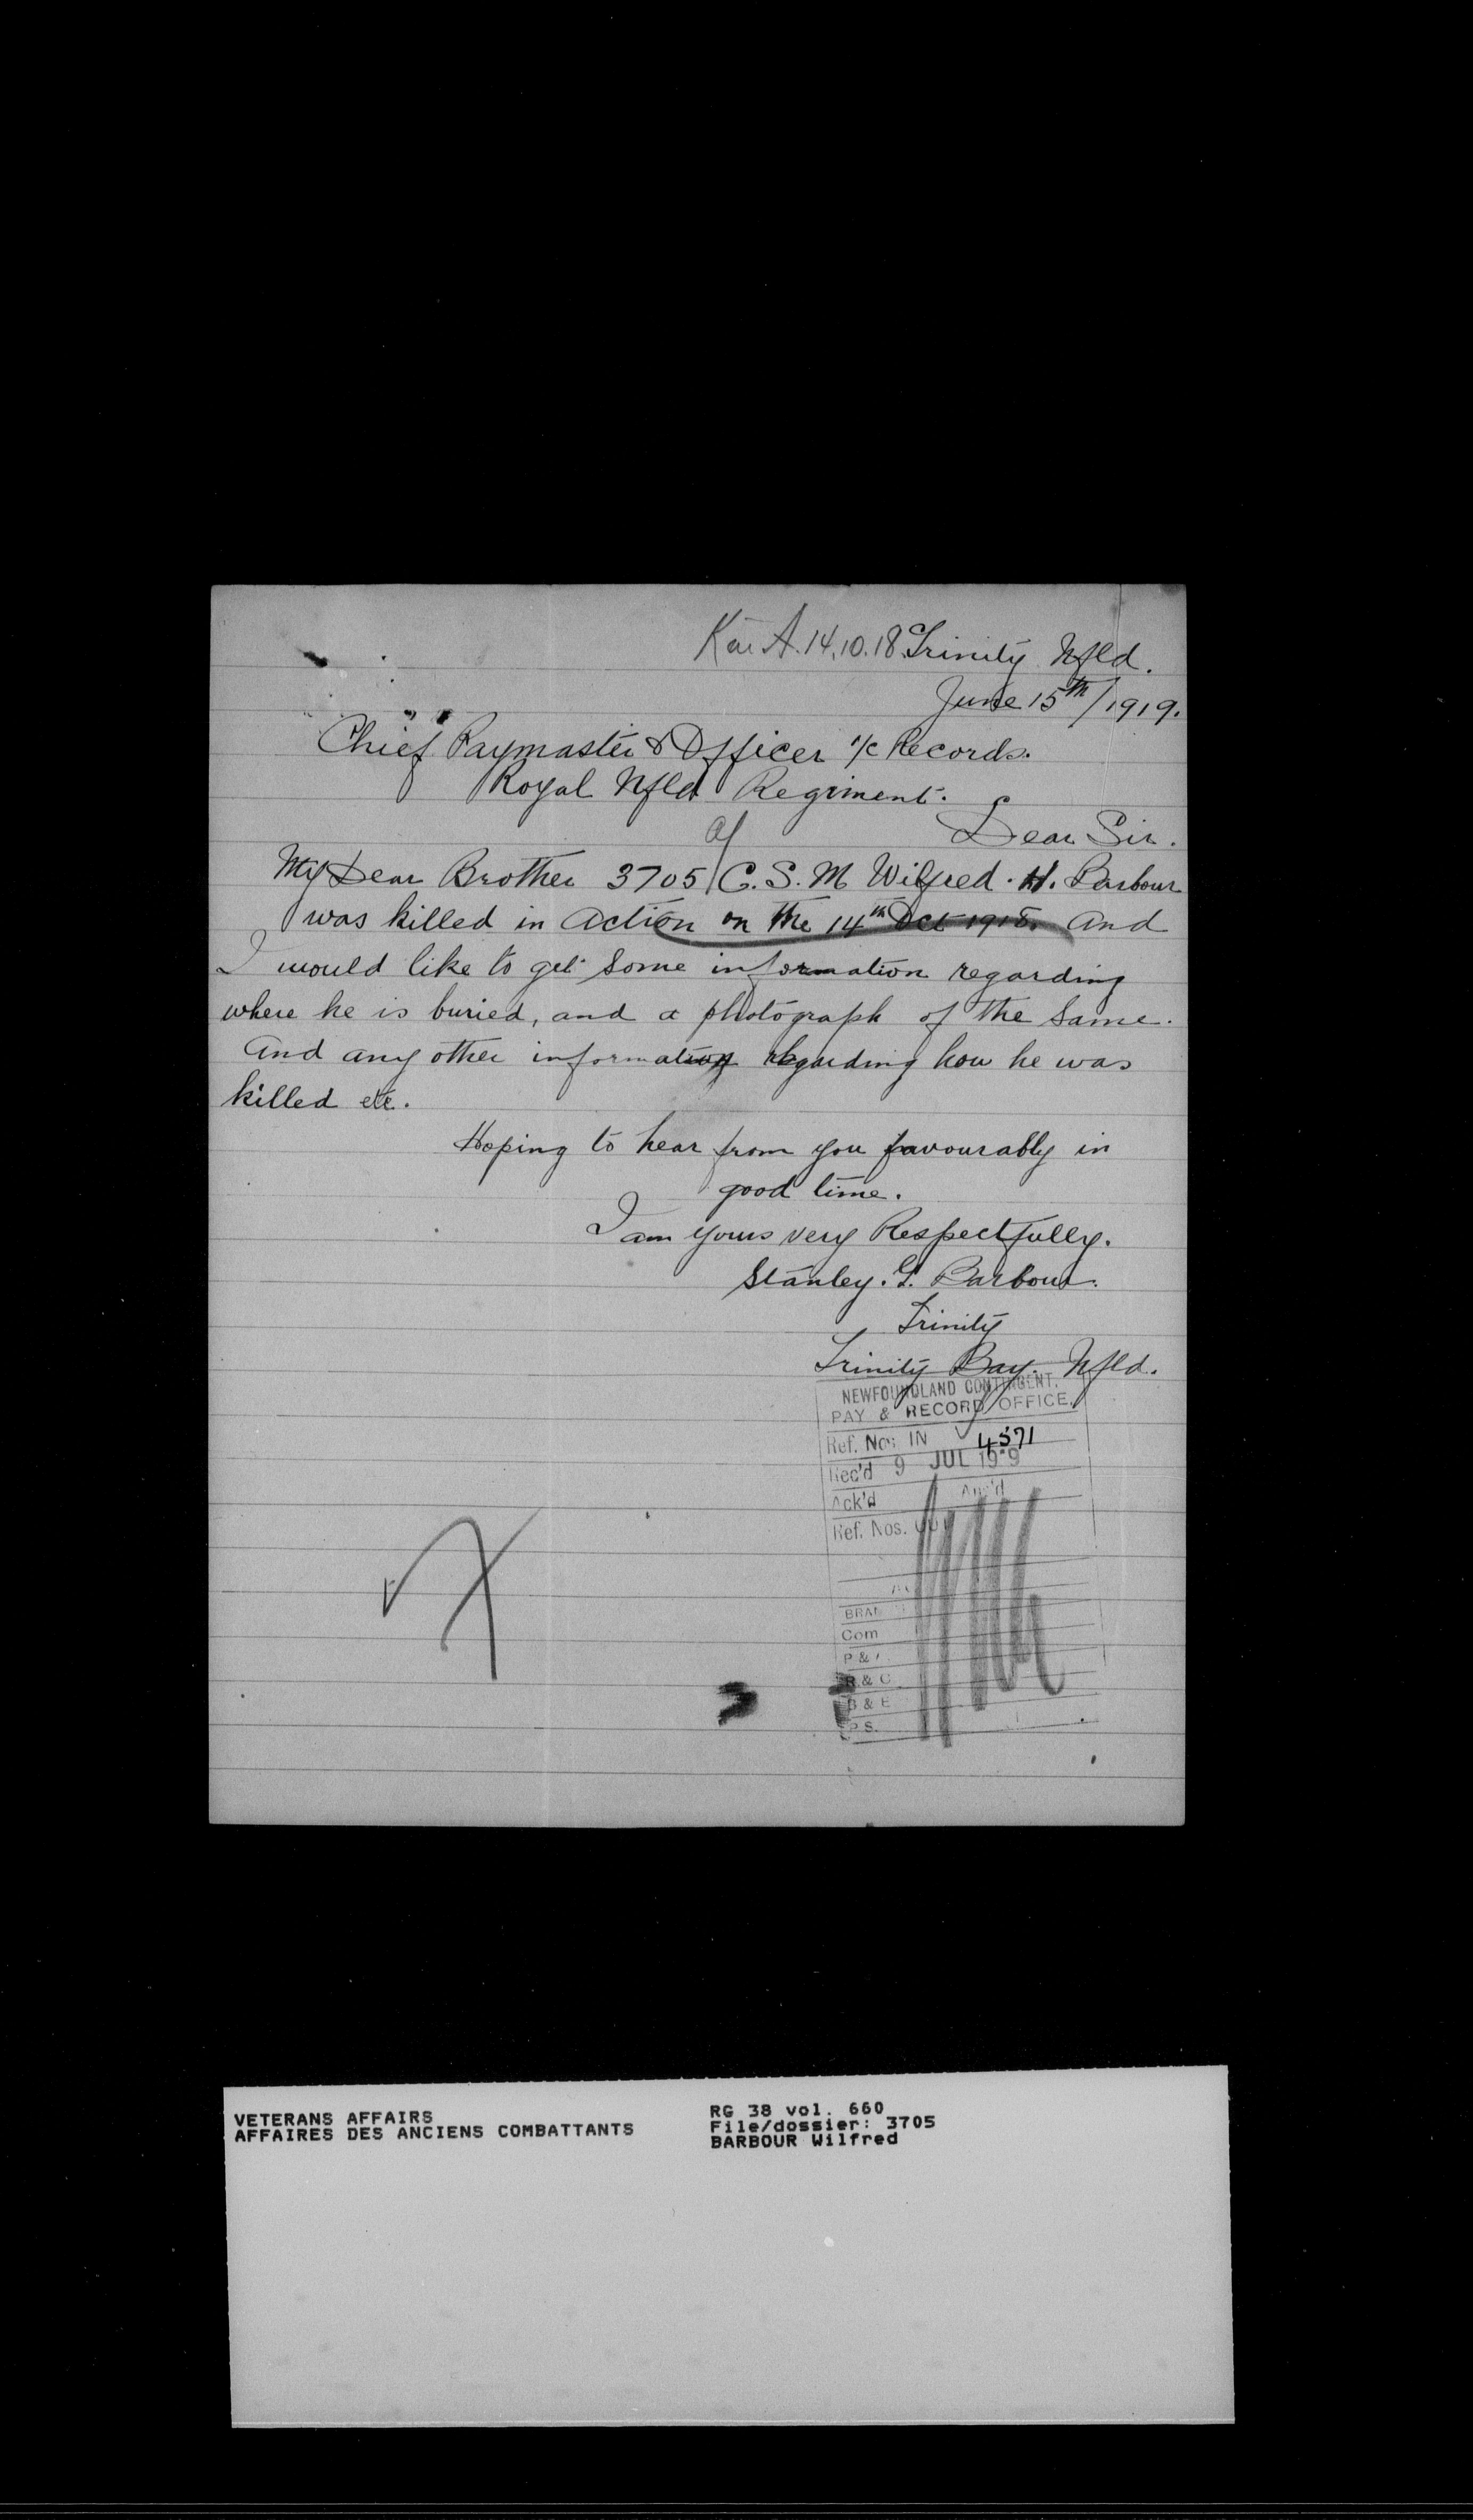 K in A. 14.10.18. Trinity Nfld.
June 15th/1919.
Chief Paymaster & Officer i/c Records.
Royal Nfld Regiment.
Dear Sir.
My Dear Brother 3705 C.S.M Wilfred. H. Barbour
was killed in Action on the 14th Oct 1918. And
I would like to get some information regarding
where he is buried, and a photograph of the same.
And any other information regarding how he was
killed etc.
Hoping to hear from you favourably in
good time.
I am yours very Respectfully.
Stanley. G. Barbour.
Trinity
Trinity Bay. Nfld.
NEWFOUNDLAND CONTINGENT.
PAY & RECORD OFFICE.
Ref. Nos IN 4571
Rec'd 9 JUL 1919
Ack'd Ans'd
Ref. Nos.
Com
P &
R & C
B & E
P.S.
VETERANS AFFAIRS
AFFAIRES DES ANCIENS COMBATTANTS
RG 38 vol. 660
File/dossier: 3705
BARBOUR Wilfred